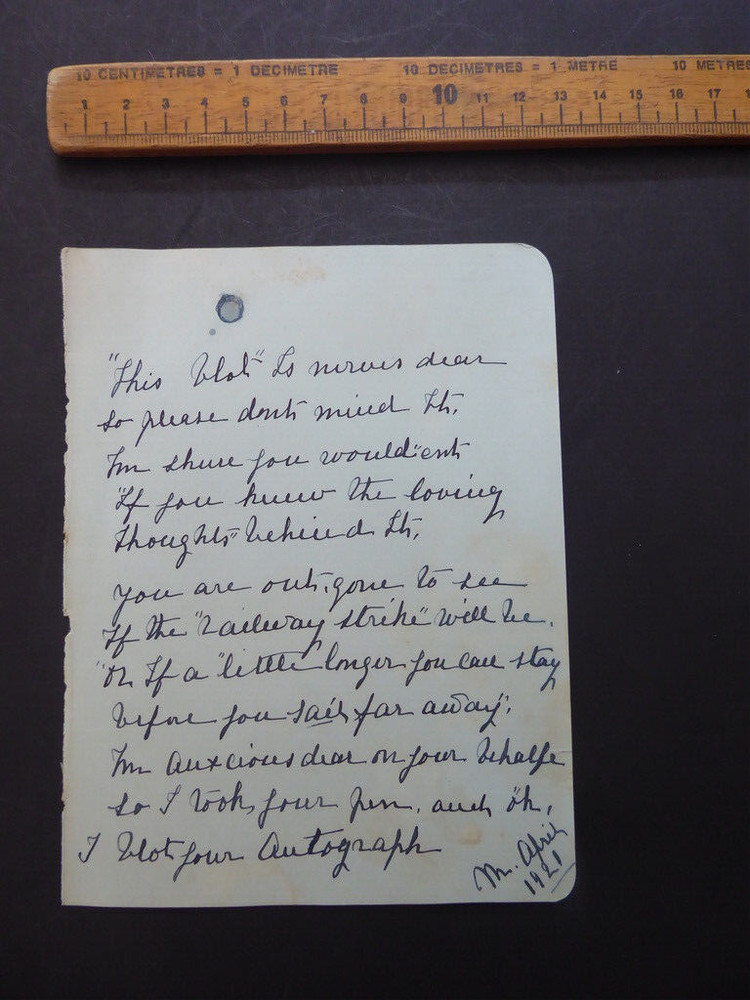 10 CENTIMETRES = 1 DECIMETRE 10 DECIMETRES = 1 METRE 10 METRES
1 2 3 4 5 6 7 8 9 10 11 12 13 14 15 16 17
"This blot" Is nerves dear
so please dont mind It,
Im shure you would"ent
"If you knew the loving
thoughts" behind It,
you are out, gone to see
If the "railway strike" will be.
"Or If a "little longer you can stay
before you sail far away",
Im Auxcious dear on your behalfe
so I took your pen, and oh,
I blot your Autograph
M. April
1921